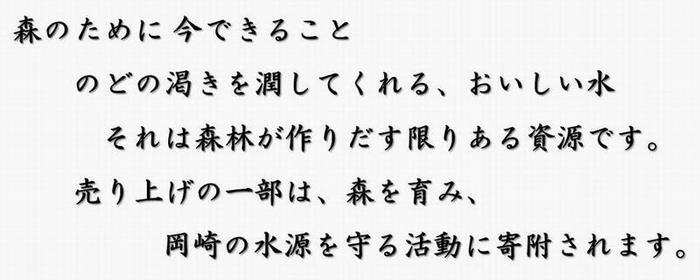 森のために 今できること
のどの渇きを潤してくれる、おいしい水
それは森林が作りだす限りある資源です。
売り上げの一部は、森を育み、
岡崎の水源を守る活動に寄附されます。